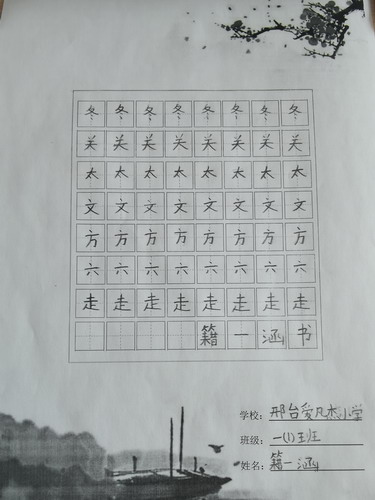 冬冬冬冬冬冬冬冬
关关关关关关关关
太太太太太太太太
文文文文文文文文
方方方方方方方方
六六六六六六六六
走走走走走走走走
籍一涵书
学校：邢台爱凡杰小学
班级：一(1)班
姓名：籍一涵